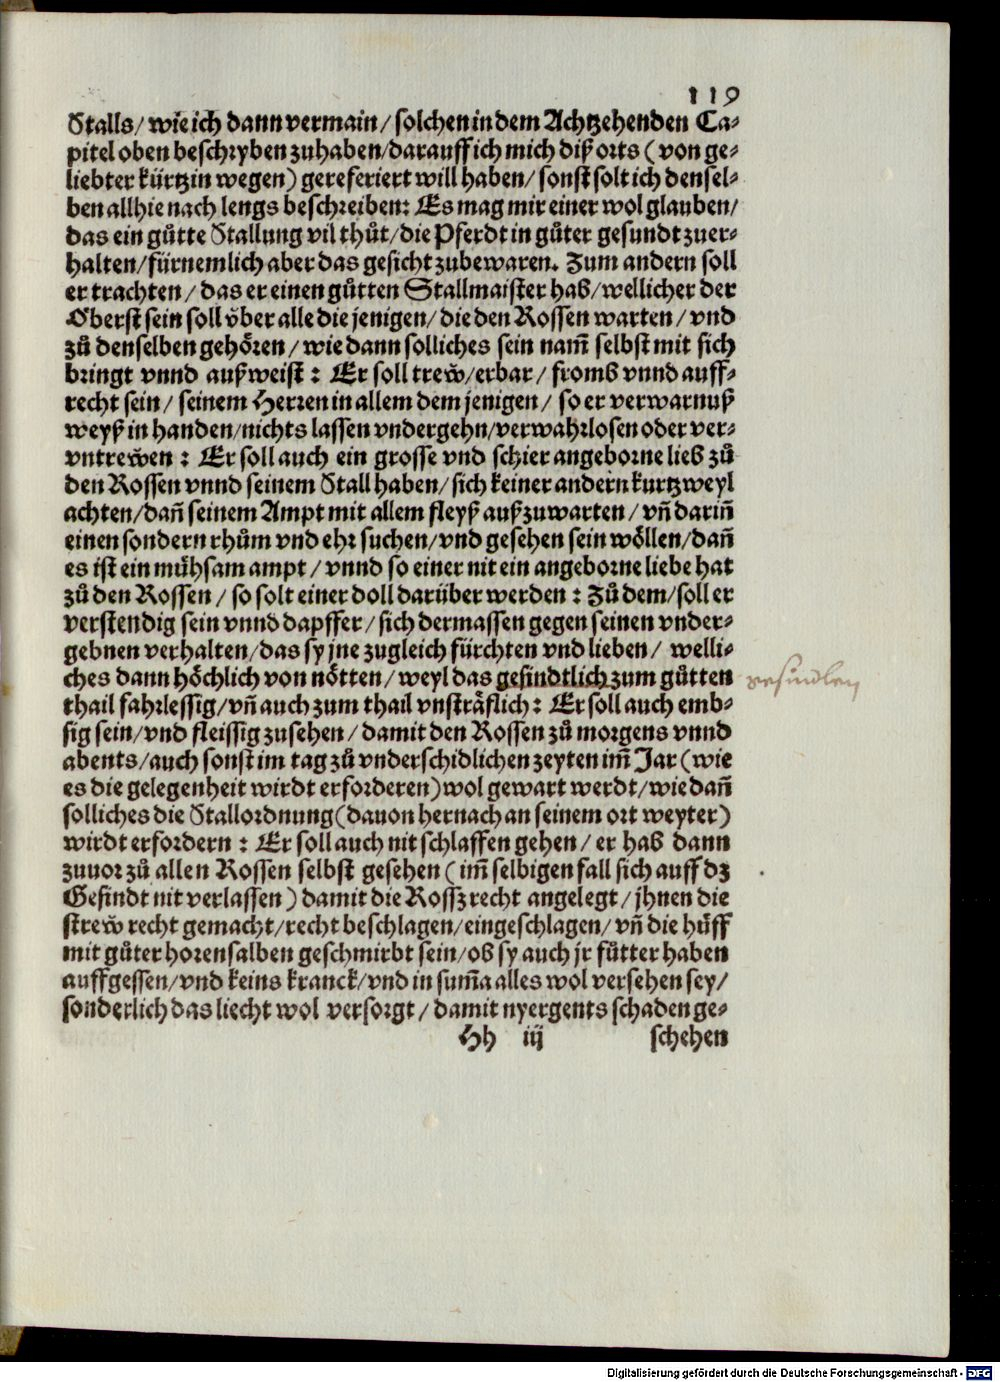 119
Stalls/ wie ich dann vermain/ solchen in dem Achtzehenden Ca-
pitel oben beschryben zuhaben/ darauff ich mich diß orts (von ge-
liebter kürtzin wegen) gereferiert will haben/ sonst solt ich densel-
ben allhie nach lengs beschreiben: Es mag mir einer wol glauben/
das ein gůtte Stallung vil thůt/ die Pferdt in gůter gesundt zuer-
halten/ fürnemlich aber das gesicht zubewaren. Zum andern soll
er trachten/ das er einen gůtten Stallmaister hab/ wellicher der
Oberst sein soll v̈ber alle die jenigen/ die den Rossen warten/ vnd
zů denselben gehören/ wie dann solliches sein nam̃ selbst mit sich
bringt vnnd außweist: Er soll trew̌/ erbar/ fromb vnnd auff-
recht sein/ seinem Herren in allem dem jenigen/ so er verwarnuß
weyß in handen/ nichts lassen vndergehn/ verwahrlosen oder ver-
vntrew̌en: Er soll auch ein grosse vnd schier angeborne lieb zů
den Rossen vnnd seinem Stall haben/ sich keiner andern kurtzweyl
achten/ dañ seinem Ampt mit allem fleyß außzuwarten/ vñ dariñ
einen sondern rhům vnd ehr suchen/ vnd gesehen sein wöllen/ dañ
es ist ein mühsam ampt/ vnnd so einer nit ein angeborne liebe hat
zů den Rossen/ so solt einer doll darüber werden: Zů dem/ soll er
verstendig sein vnnd dapffer/ sich dermassen gegen seinen vnder-
gebnen verhalten/ das sy jne zugleich fürchten vnd lieben/ welli-
ches dann höchlich von nötten/ weyl das gesindtlich zum gůtten
thail fahrlessig/ vñ auch zum thail vnsträflich: Er soll auch emb-
sig sein/ vnd fleissig zusehen/ damit den Rossen zů morgens vnnd
abents/ auch sonst im tag zů vnderschidlichen zeyten im̃ Jar (wie
es die gelegenheit wirdt erforderen) wol gewart werdt/ wie dañ
solliches die Stallordnung (dauon hernach an seinem ort weyter)
wirdt erfordern: Er soll auch nit schlaffen gehen/ er hab dann
zuuor zů allen Rossen selbst gesehen (im̃ selbigen fall sich auff dz
Gesindt nit verlassen) damit die Rossz recht angelegt/ jhnen die
strew̌ recht gemacht/ recht beschlagen/ eingeschlagen/ vñ die hůff
mit gůter hornsalben geschmirbt sein/ ob sy auch jr fůtter haben
auffgessen/ vnd keins kranck/ vnd in sum̃a alles wol versehen sey/
sonderlich das liecht wol versorgt/ damit nyergents schaden ge-
Hh iij schehen
Digitalisierung gefördert durch die Deutsche Forschungsgemeinschaft - DFG